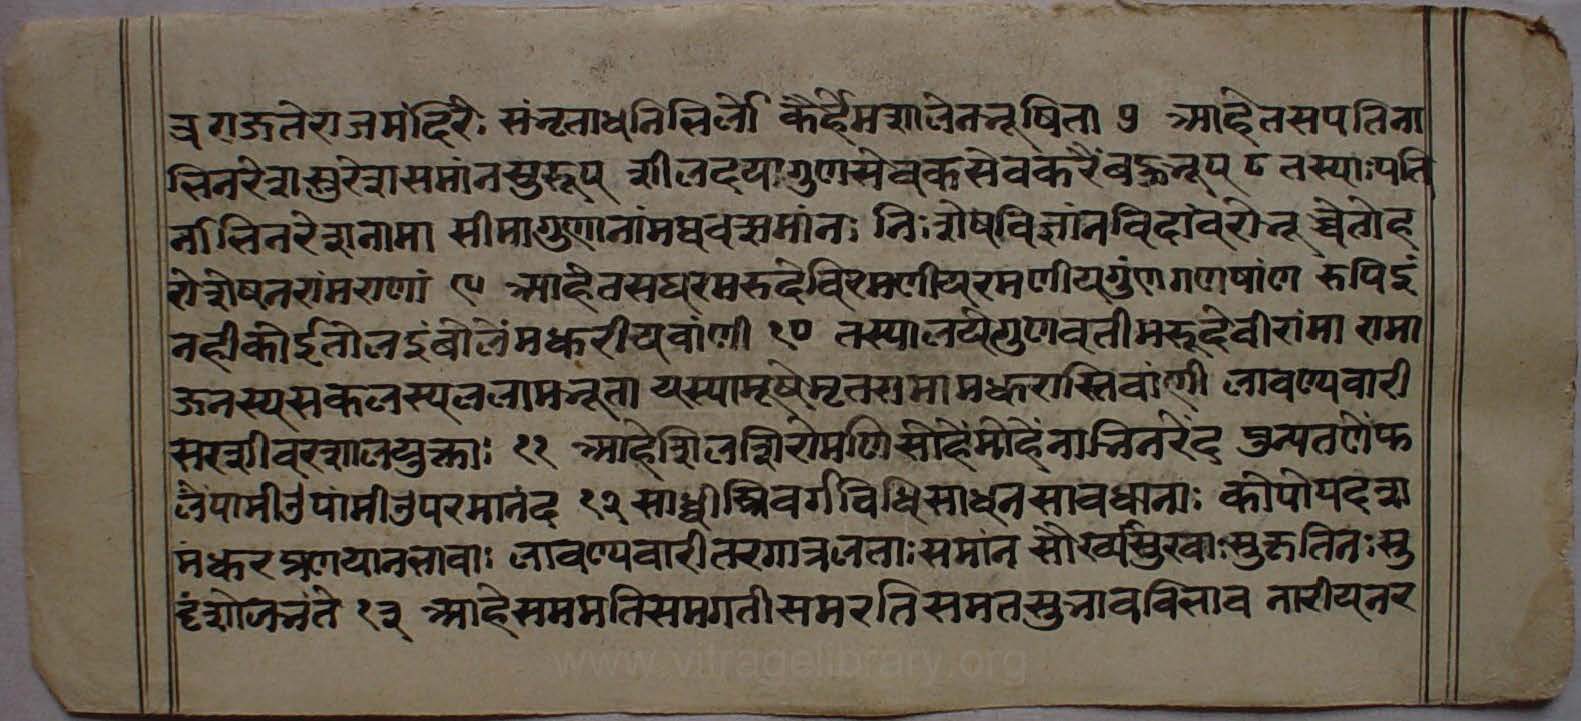 त्रराजतेराजमंदिरैः संनृताधनिलिर्लो कैर्हेमशालेनभूषिता ७ आहेतसपतिना
भिनरेशसुरेशसमांनसुरूप शीलदयागुणसेवकसेवकरैंबहुभूप ८ तस्याःपति
र्नाभिनरेशनामा सीमागुणानांमघवासमांनः निःशेषविज्ञांनविदांवरोभू च्चेतोह
रोशेषनरांमराणां ९ आहेतसघरमरुदेविरमणीयरमणीयगुंणगणषांण रुपिइं
नहीकोईतोलइंबोलेंमधुरीयवांणी १० तस्यालयेगुणवतीमरुदेवीरांमा रामा
जनस्यसकलस्यललामभूता यस्यामूषेमृतसमामधुरास्तिवांणी लावण्यवारी
सरशीवरशालयुक्ताः ११ आहेशिलशिरोमणिसोहेंमोहेंनाभिनरेंद पुन्यतणेंफ
लेंपामीउपांमीउपरमानंद १२ साध्वीत्रिवर्गविधिसाधनसावधानाः कोपोपदेशा
मंधुरप्रणयानलावाः लावण्यवारीतरगात्रलताःसमांन सौख्यसुखाःसुकृतिनःसु
दृंशोजनंते १३ आहेसममतिसमगतीसमरतिसमतसुभावविलाव नारीयनर
www.vitragelibrary.org